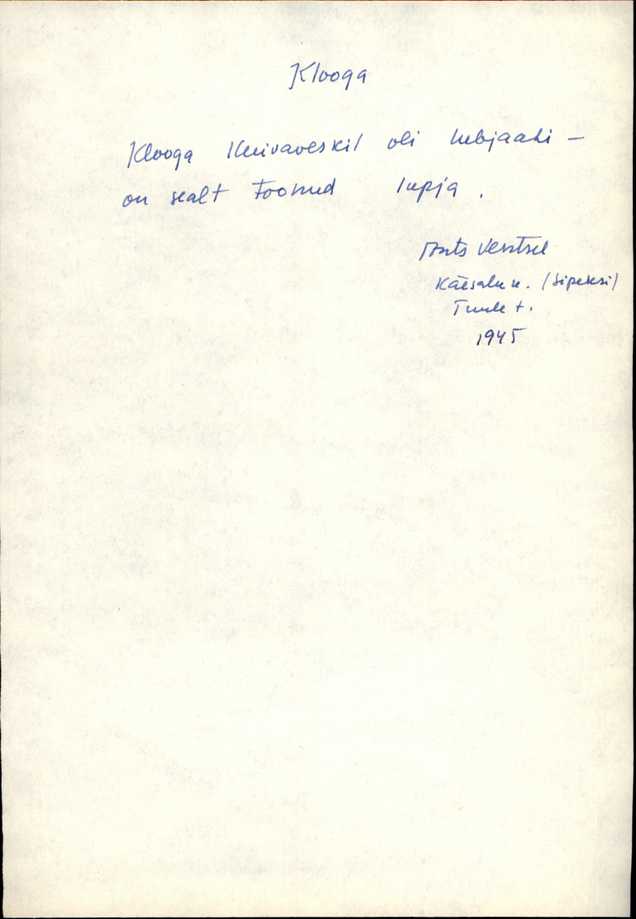 Klooga
Klooga Kuivaveskil oli lubjaahi –
on sealt toonud lupja.
Ants Ventsel
Käesalu k. (Sipelsi)
Tuule t.
1945